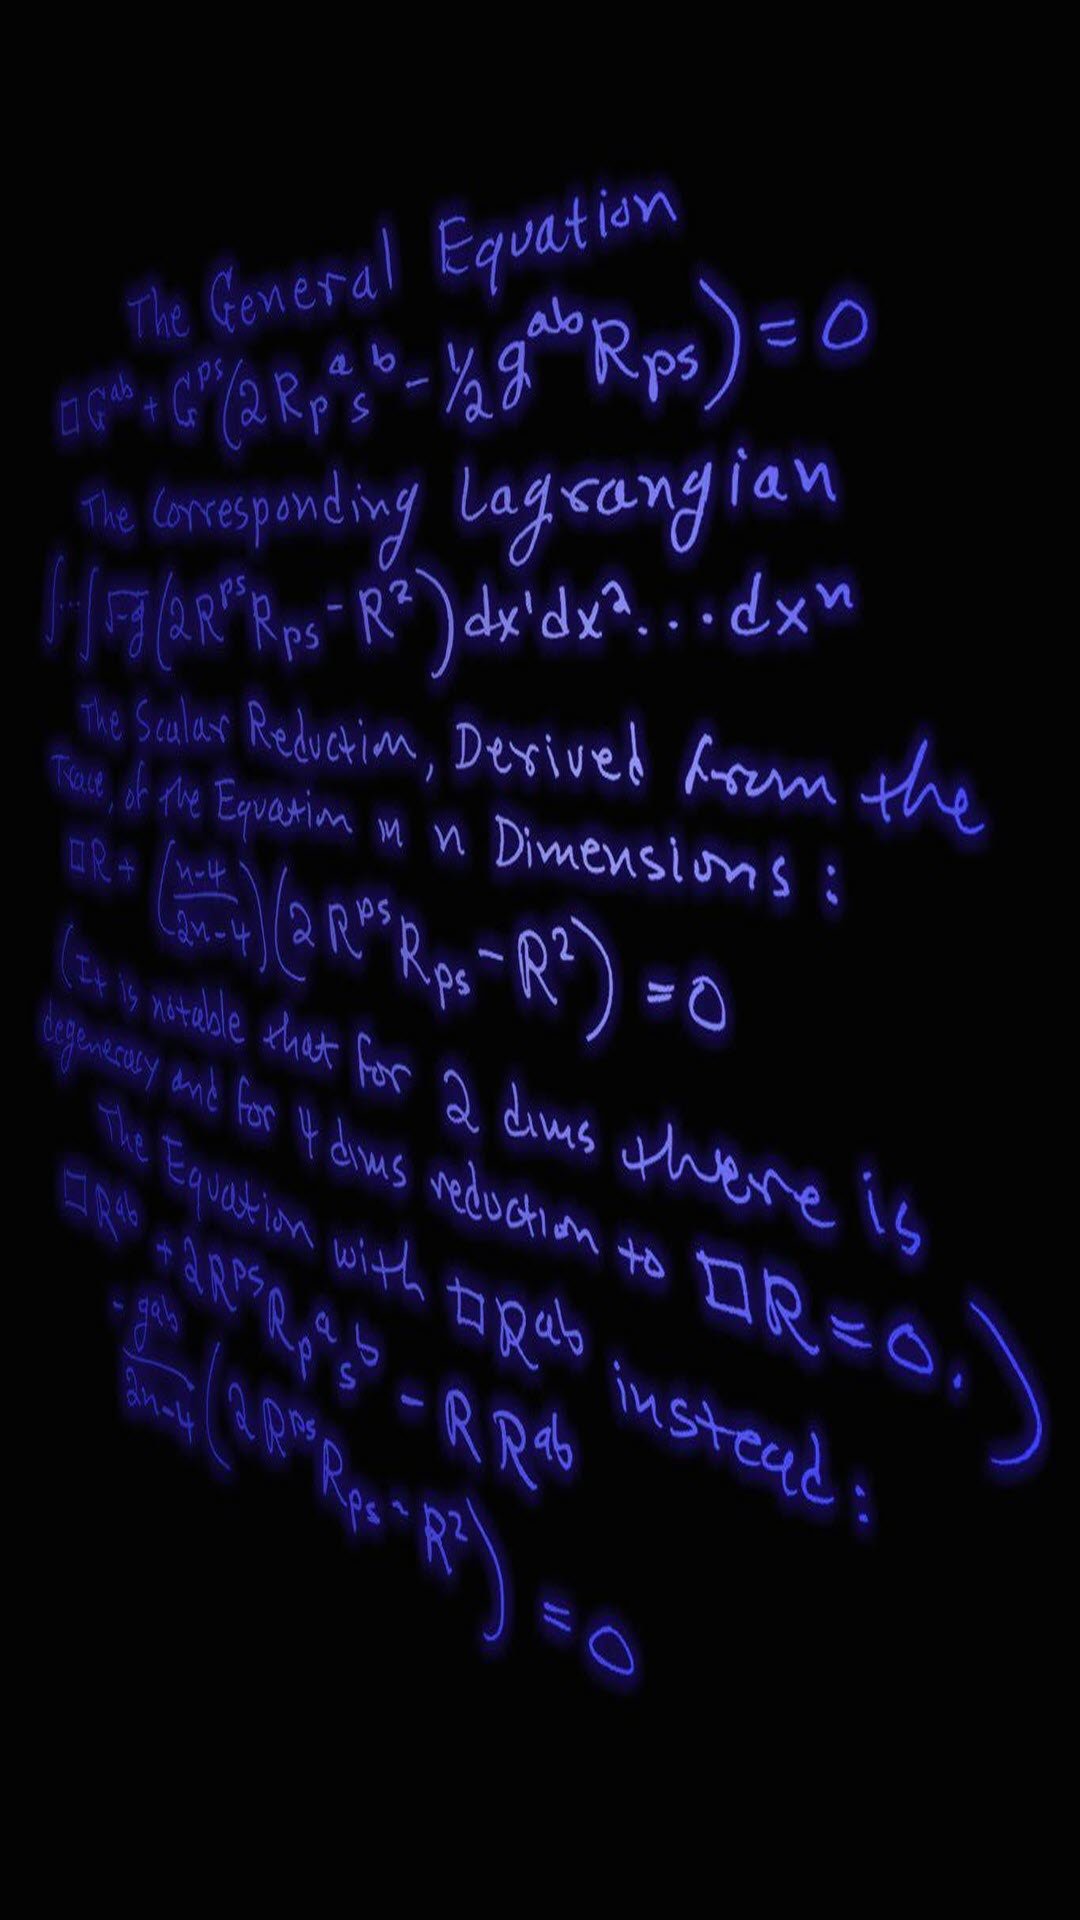 The General Equation
□Gᵃᵇ + Gᵖˢ(2Rₚᵃₛᵇ - ½gᵃᵇRₚₛ) = 0
The Corresponding Lagrangian
∫...∫√-g(2RᵖˢRₚₛ - R²)dx¹dx²...dxⁿ
The Scalar Reduction, Derived from the
Trace, of the Equation in n Dimensions:
□R + ((n-4)/(2n-4))(2RᵖˢRₚₛ - R²) = 0
(It is notable that for 2 dims there is
degeneracy and for 4 dims reduction to □R = 0.)
The Equation with □Rᵃᵇ instead:
□Rᵃᵇ + 2RᵖˢRₚᵃₛᵇ - RRᵃᵇ
- gᵃᵇ/(2n-4)(2RᵖˢRₚₛ - R²) = 0